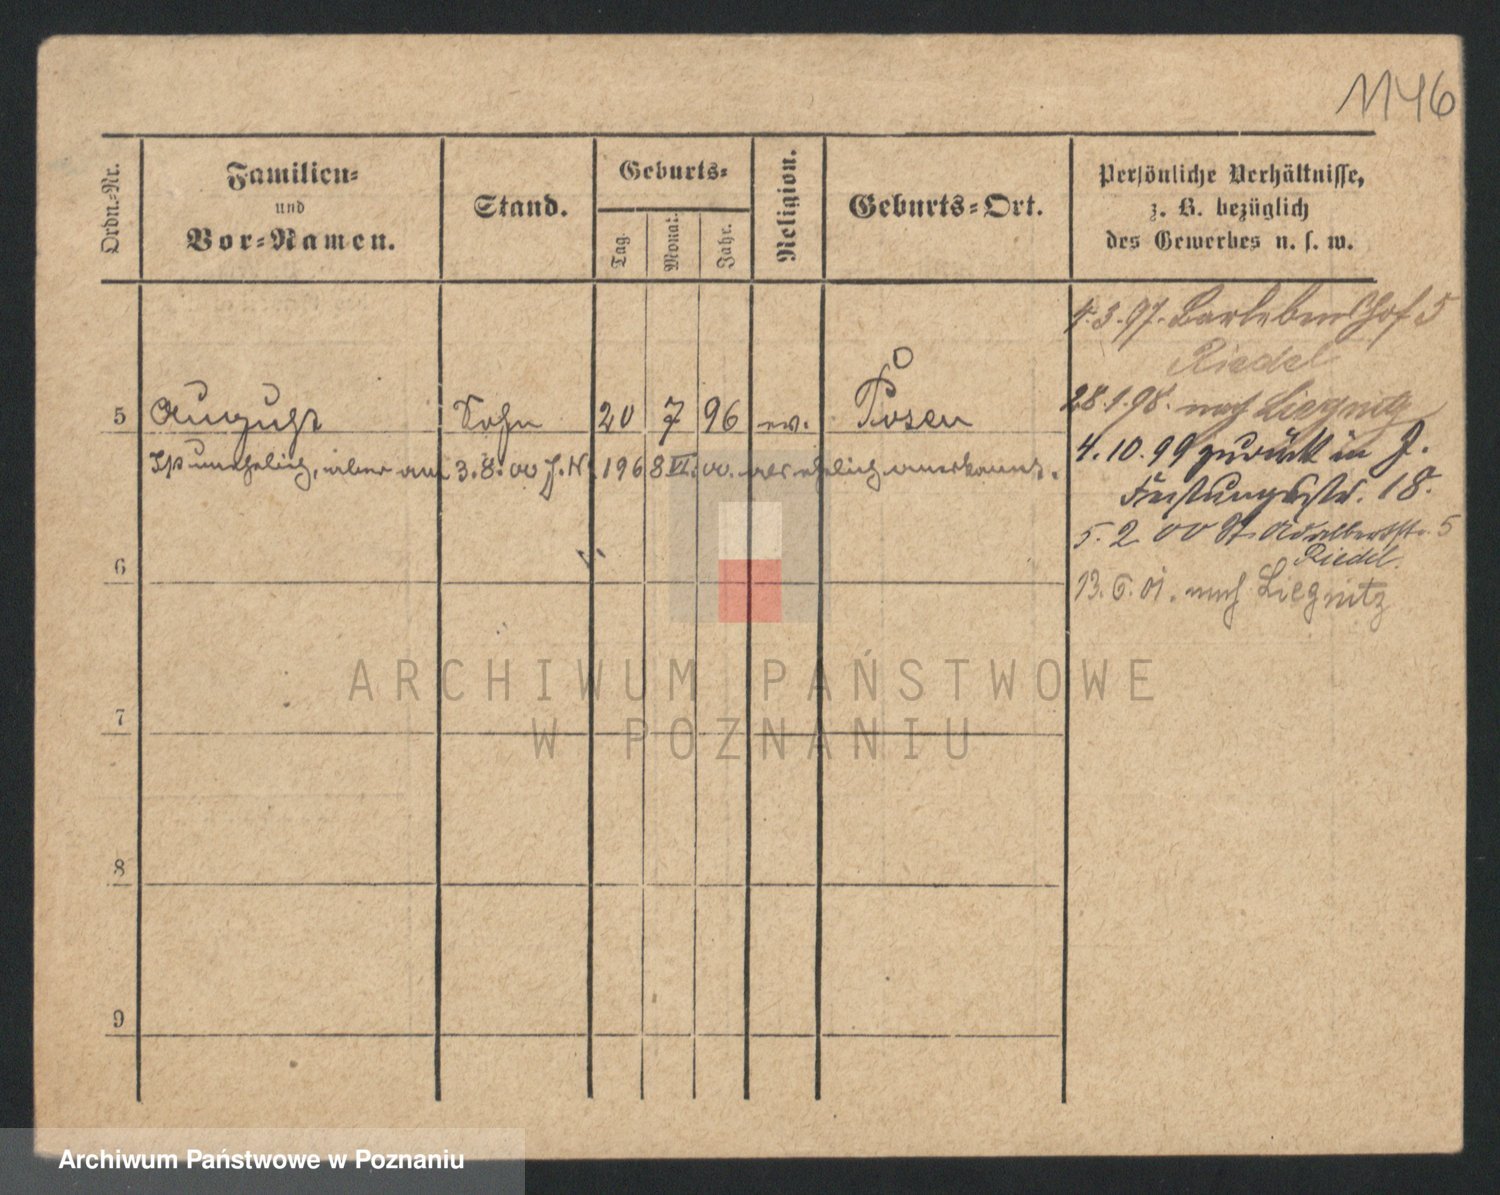 1146
Ordn.-Nr.
Familien-
und
Vor-Namen.
Stand.
Geburts-
Tag.
Monat.
Jahr.
Religion.
Geburts-Ort.
Persönliche Verhältnisse,
z. B. bezüglich
des Gewerbes u. s. w.
5 August Sohn 20 7 96 ev. Posen
Ist unehelich, aber am 3.8.00 J.N. 196 8 VI. 00. als ehelich anerkannt.
6
7
8
9
4.3.97. Barlebenshof 5
Riedel
28.1.98. nach Liegnitz
4.10.99 zurück in J.
Festungsstr. 18.
5. 2 00 St. Adalbertstr. 5
Riedel.
13.6.01. nach Liegnitz
ARCHIWUM PAŃSTWOWE
W POZNANIU
Archiwum Państwowe w Poznaniu